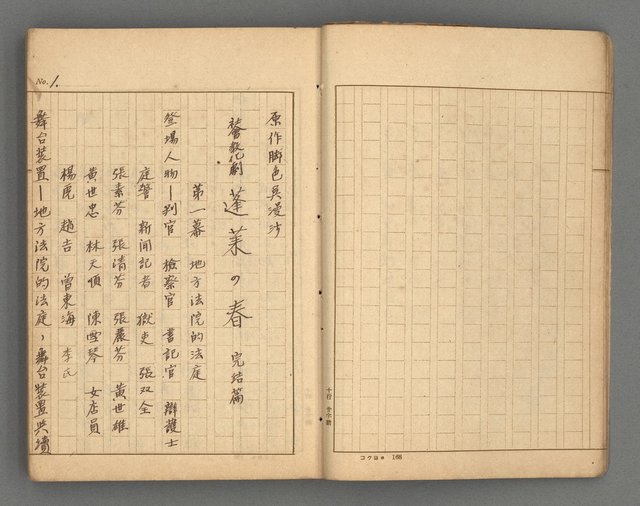 No. 1.
原作脚色吳漫沙
社會教化劇 蓬萊の春 完結篇
第一幕 地方法院的法庭
登場人物—判官 檢察官 書記官 辯護士
庭警 新聞記者 獄吏 張双全
張素芬 張清芬 張麗芬 黃世雄
黃世忠 林天順 陳雪琴 女店員
楊虎 趙吉 曾東海 李氏
舞台裝置—地方法院的法庭，舞台裝置與續
十行 廿字詰
コクヨ 168